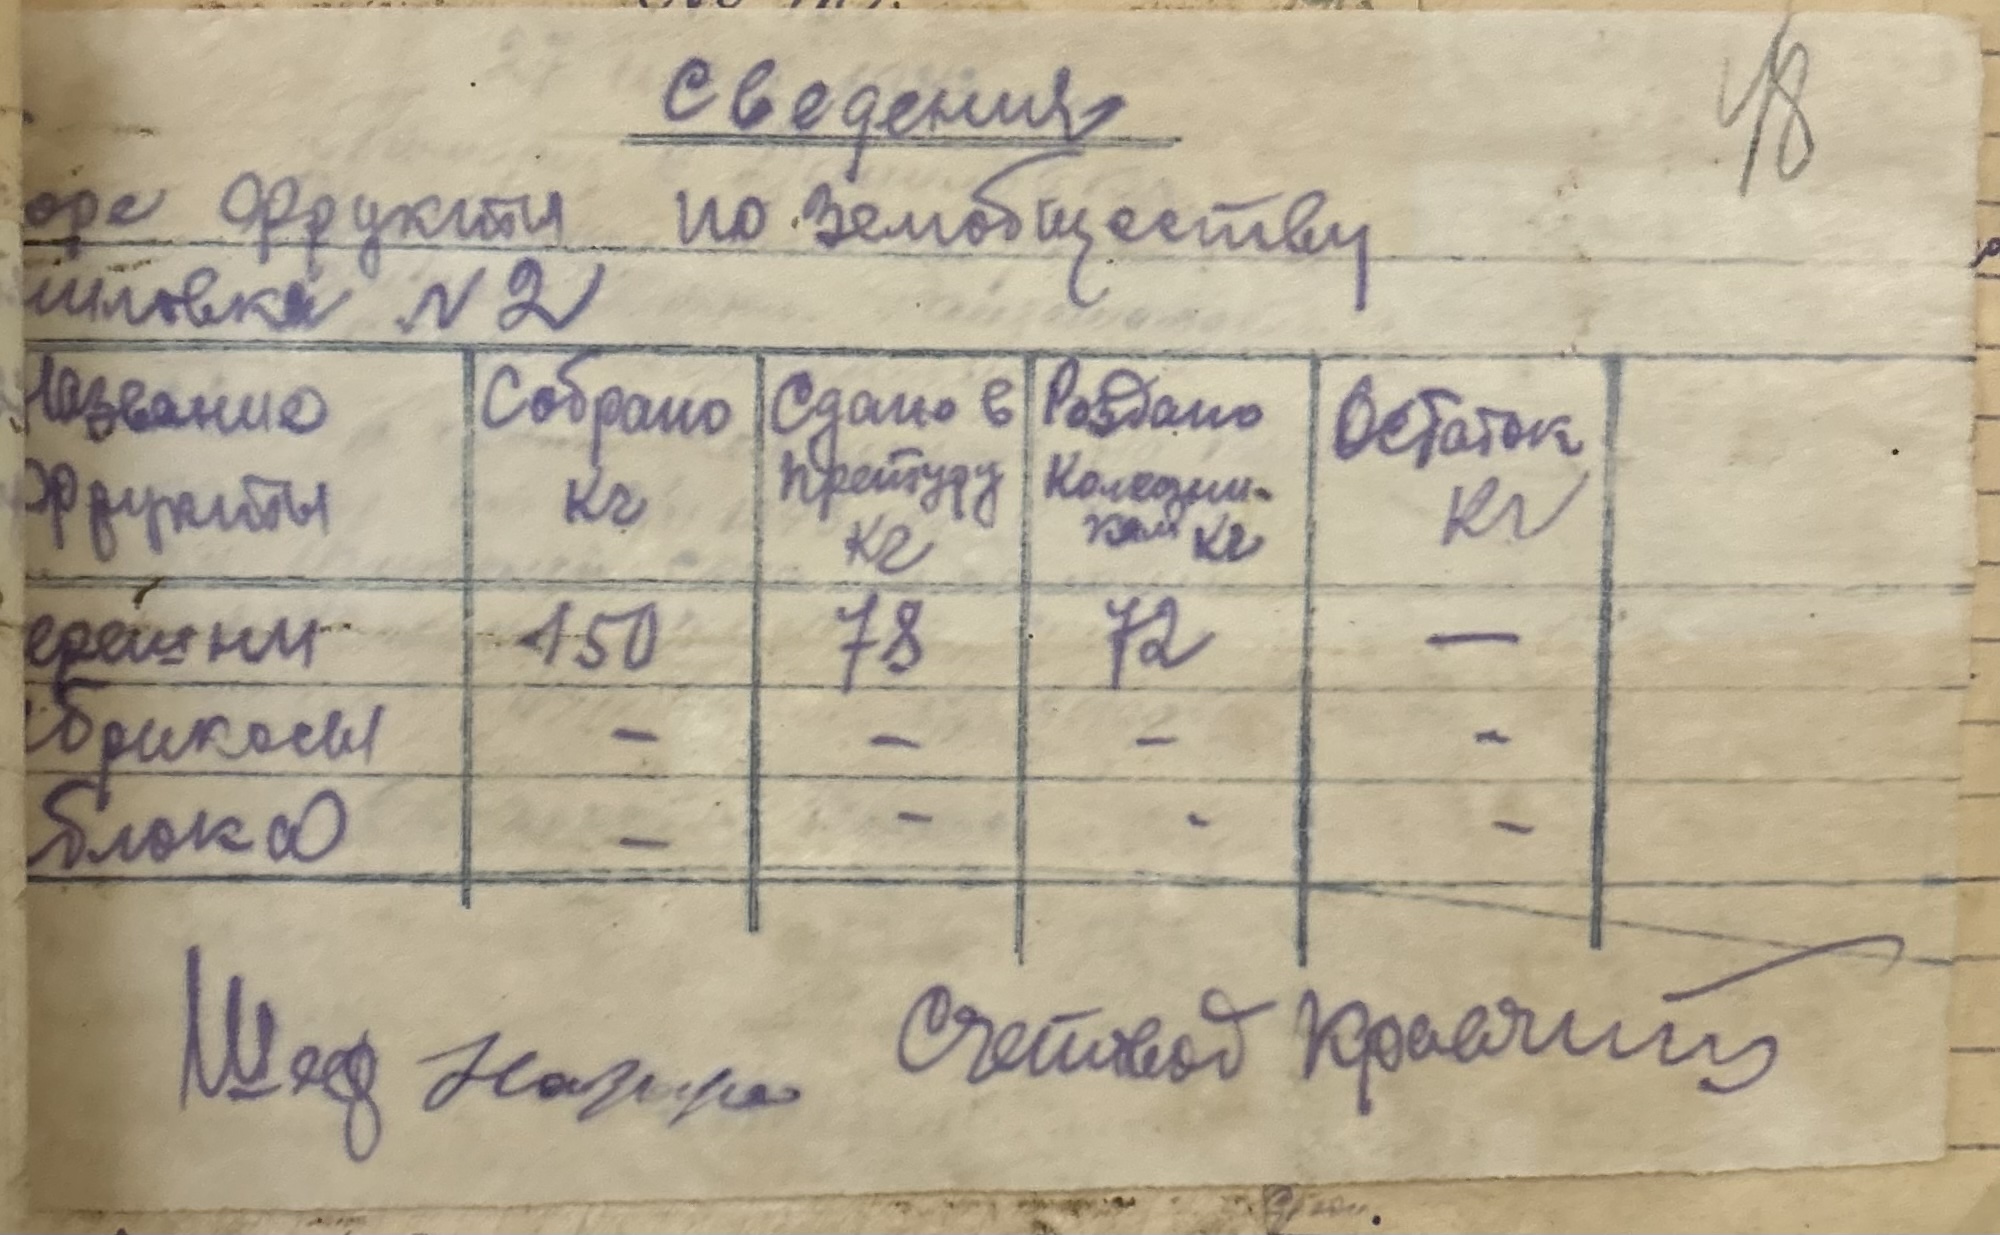 48
Сведения
оре фрукты по земобществу
шловка N 2
Название фрукты Собрано кг Сдано в претуру кг Роздано Колезни-кам кг Остаток кг
ерешни 150 78 72 —
брикосы - - - -
блока - - - -
Шеф Счетовод